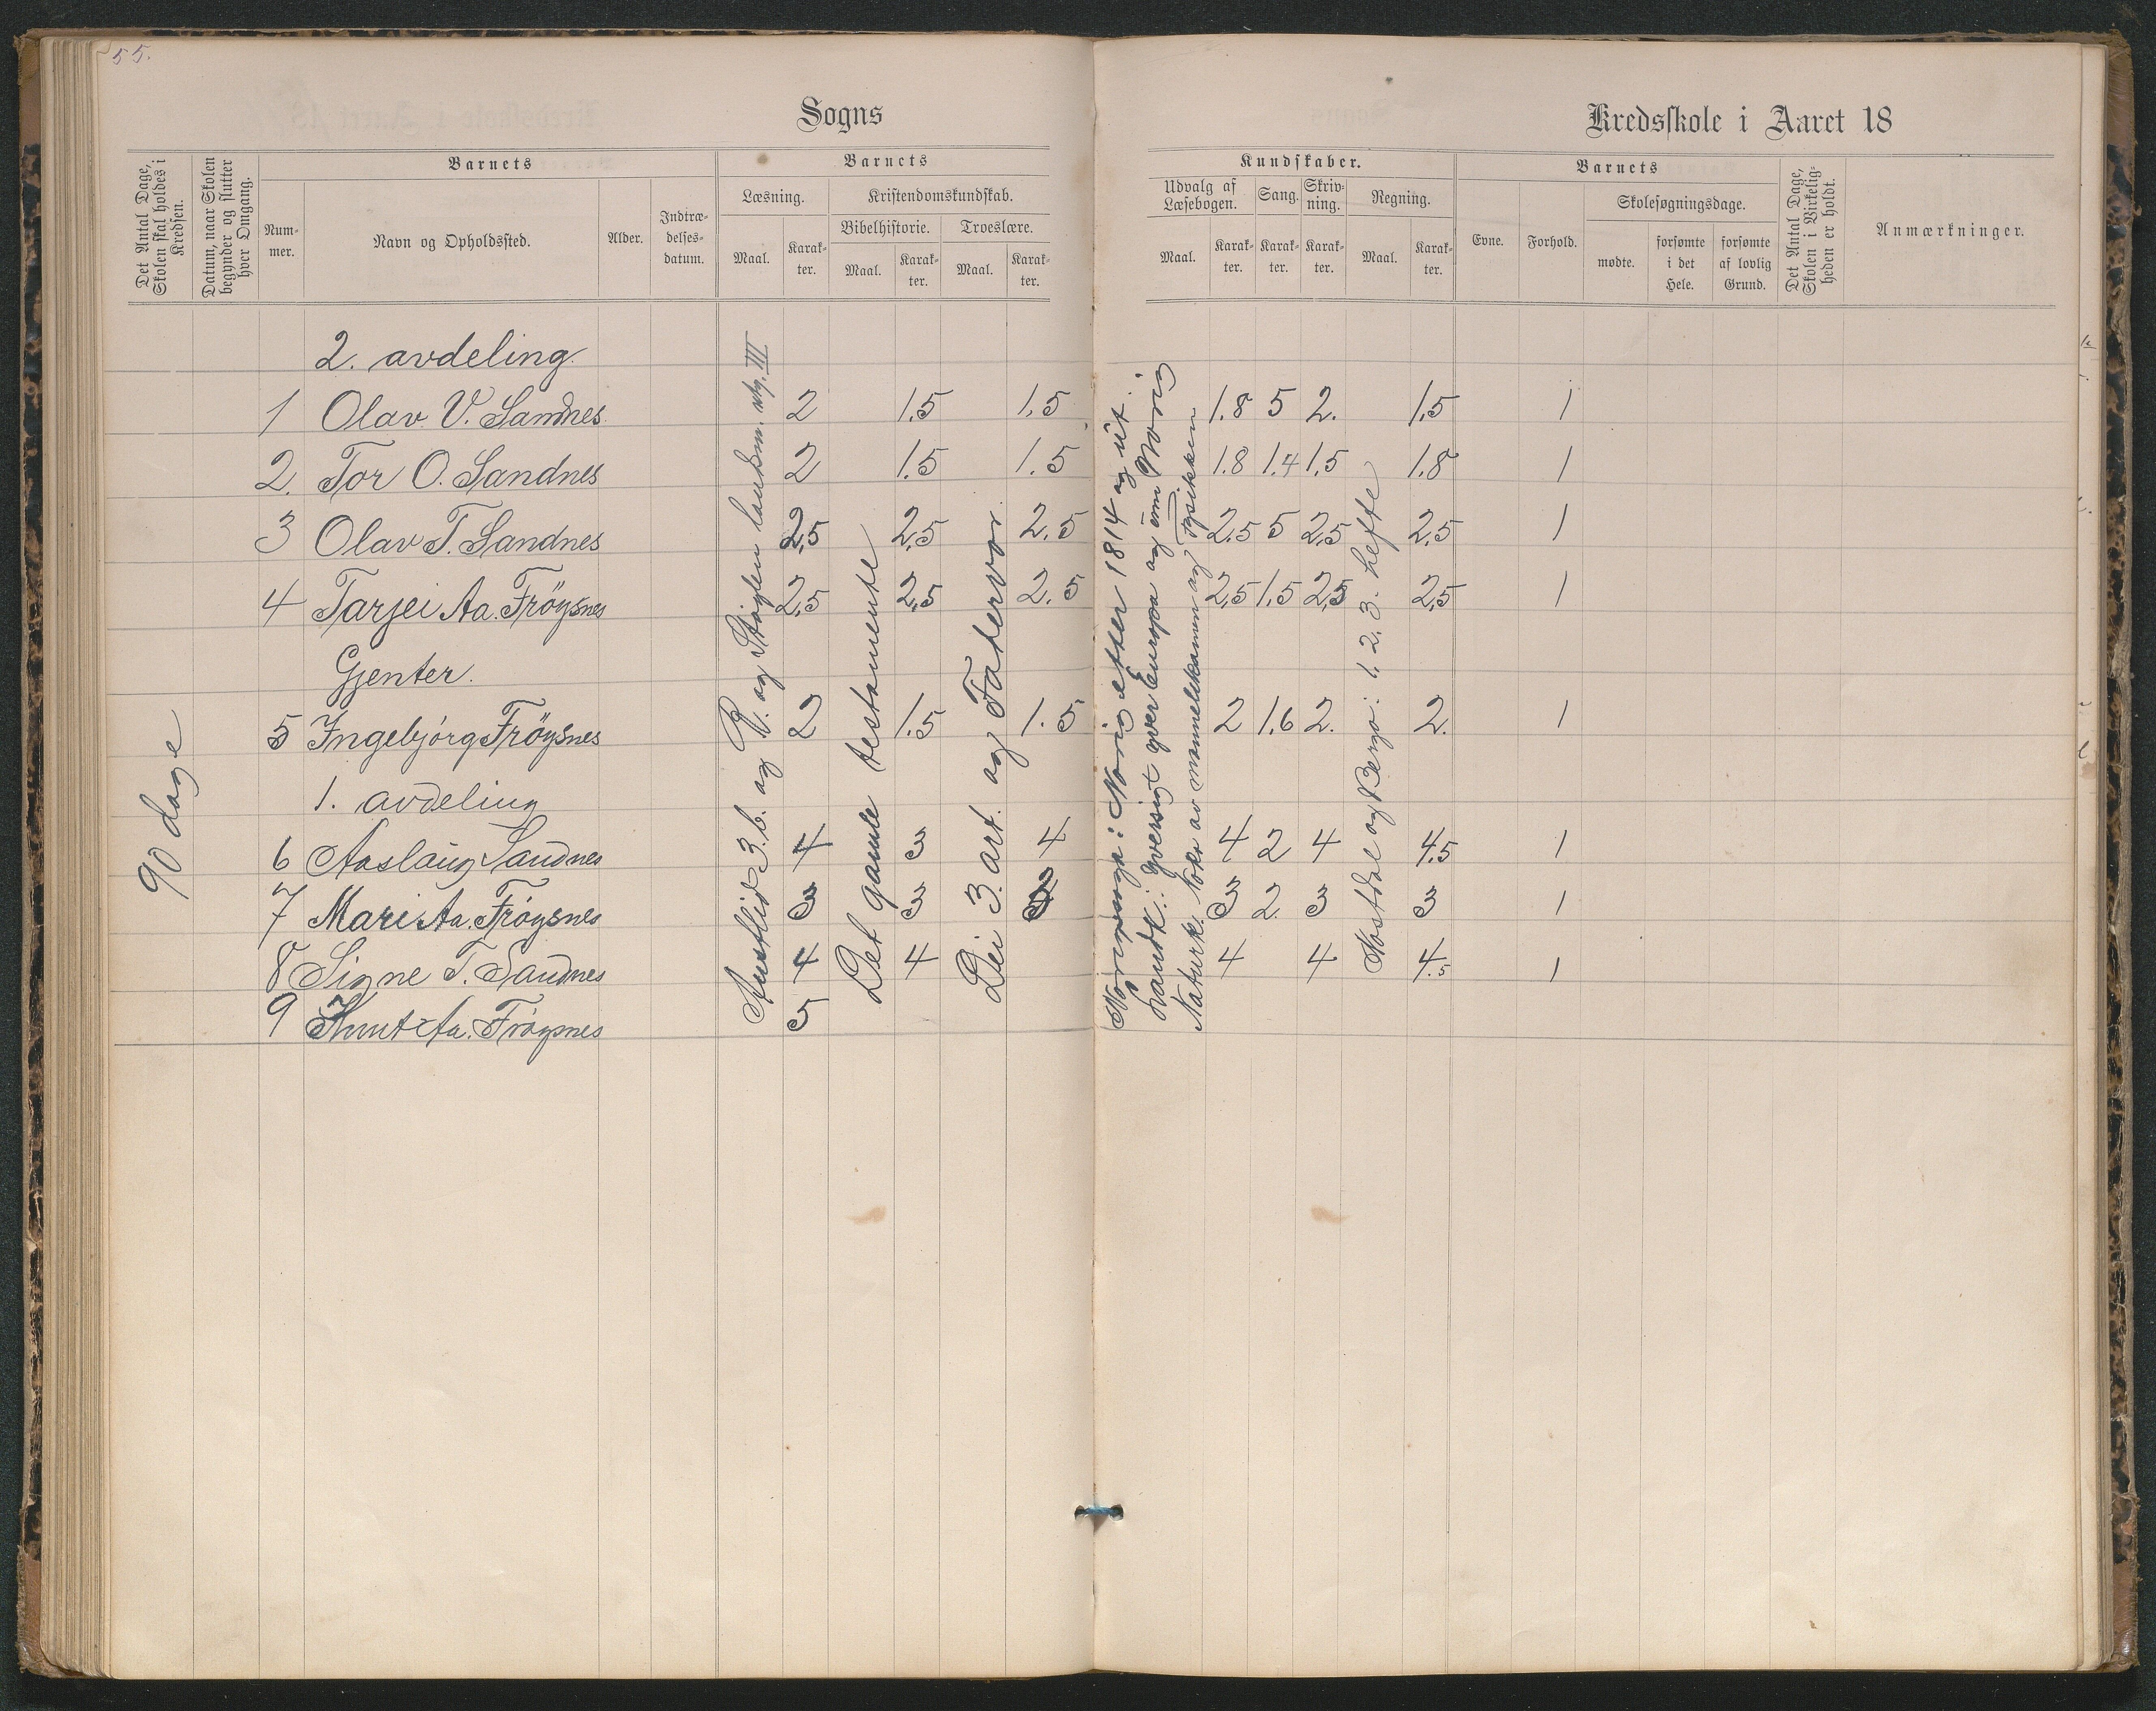 55.
Sogns
Kredsskole i Aaret 18
Det Antal Dage, Skolen skal holdes i Kredsen.
Datum, naar Skolen begynder og slutter hver Omgang.
Barnets
Nummer.
Navn og Opholdssted.
Alder.
Indtrædelsesdatum.
Barnets
Læsning.
Maal.
Karakter.
Kristendomskundskab.
Bibelhistorie.
Maal.
Karakter.
Troeslære.
Maal.
Karakter.
Kundskaber.
Udvalg af Læsebogen.
Maal.
Karakter.
Sang.
Karakter.
Skrivning.
Karakter.
Regning.
Maal.
Karakter.
Barnets
Evne.
Forhold.
Skolesøgningsdage.
mødte.
forsømte i det Hele.
forsømte af lovlig Grund.
Det Antal Dage, Skolen i Virkeligheden er holdt.
Anmærkninger.
2. avdeling.
1 Olav V. Sandnes 2 1.5 1.5 1.8 5 2. 1.5 1
2. Tor O. Sandnes 2 1.5 1.5 1.8 1.4 1.5 1.8 1
3 Olav T. Sandnes 2,5 2,5 2.5 2,5 5 2,5 2,5 1
4 Tarjei Aa. Fröysnes 2,5 2,5 2.5 2,5 1.5 2,5 2,5 1
Gjenter.
5 Ingebjörg Fröysnes 2 1.5 1.5 2 1.6 2. 2. 1
1. avdeling
6 Aaslaug Sandnes 4 3 4 4 2 4 4.5 1
7 Mari Aa. Fröysnes 3 3 3 2 3 3 1
8 Signe T. Sandnes 4 4 4 4 4.5 1
9 Knut Aa. Fröysnes 5
90 dage
Austlid 3. b. og R. og Stöylen landsm. utg. III
Det gamle testamente
Dei 3. art. og Fatervor.
Noregssoga: Norig etter 1814 og ut.
Landk.: Yversigt yver Europa og um Norig
Naturk. Noko av mannelikamen og fysikken
Nostdal og Bergo: 1. 2. 3. hefte